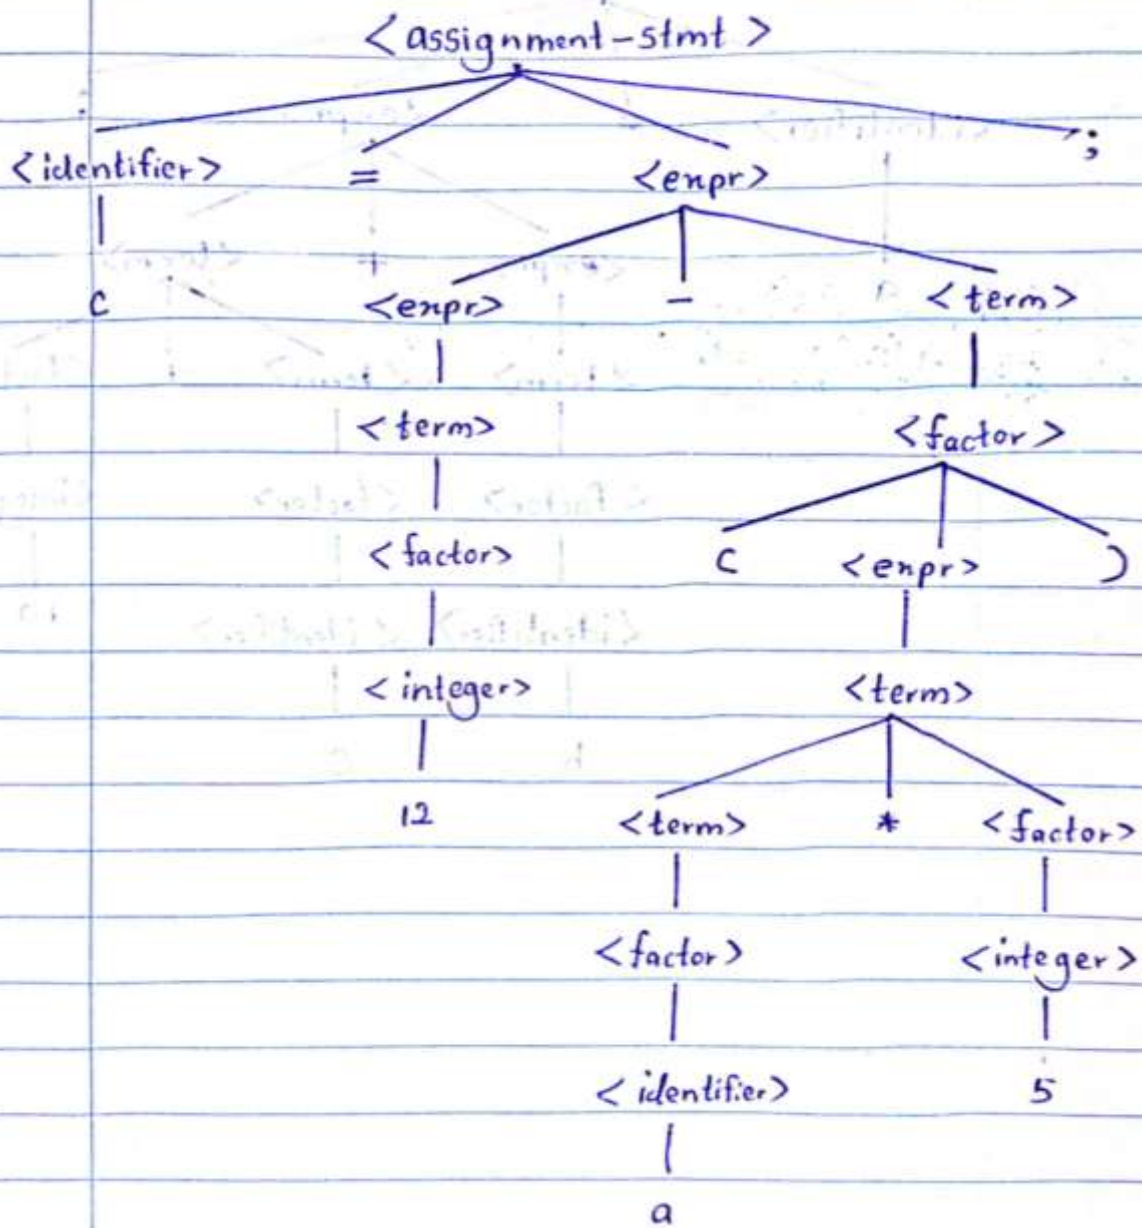 <assignment-stmt>
<identifier> = <expr> ;
c <expr> - <term>
<term> <factor>
<factor> ( <expr> )
<integer> <term>
12 <term> * <factor>
<factor> <integer>
<identifier> 5
a